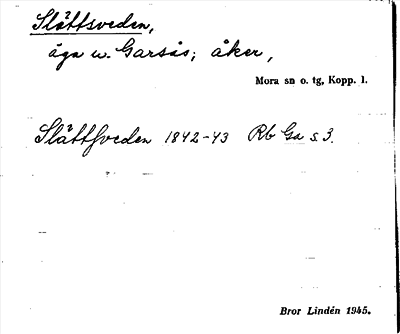 Slättsveden,
äga u. Garsås; åker,
Mora sn o. tg, Kopp. l.
Slättsveden 1842-43 Rb Ga s 3.
Bror Lindén 1945.